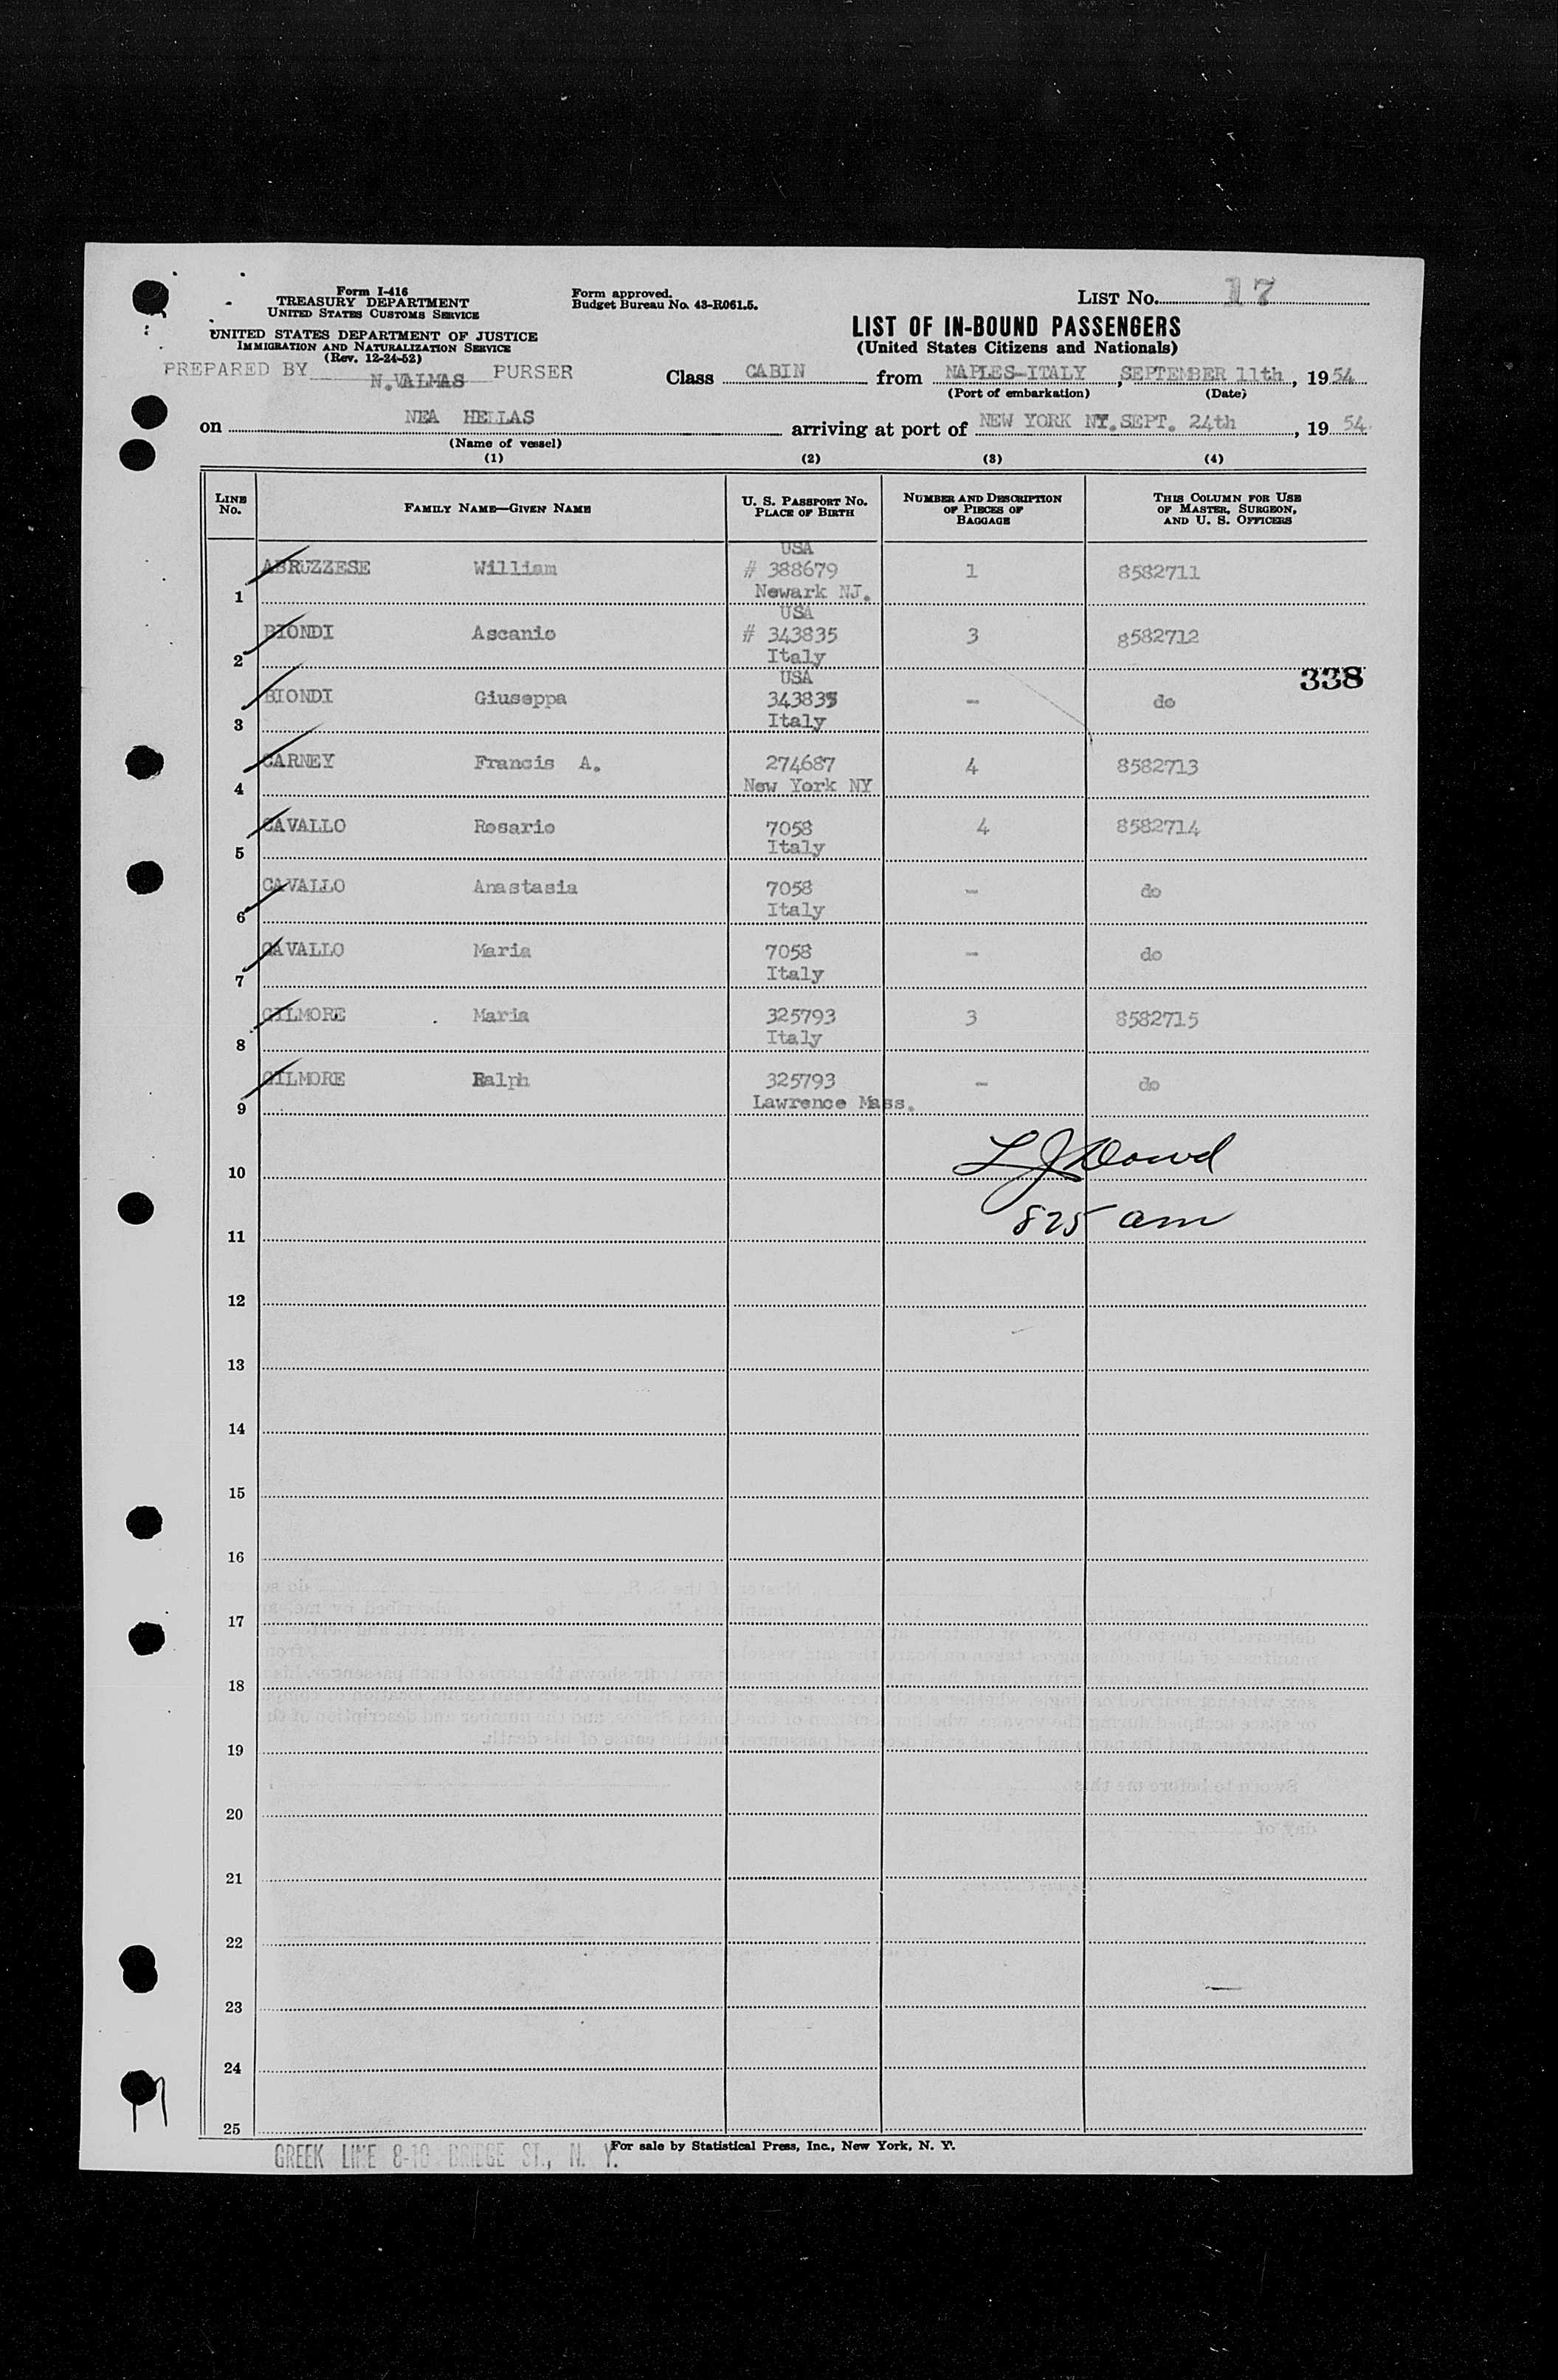 Form I-416
TREASURY DEPARTMENT
UNITED STATES CUSTOMS SERVICE
UNITED STATES DEPARTMENT OF JUSTICE
IMMIGRATION AND NATURALIZATION SERVICE
(Rev. 12-24-52)
Form approved.
Budget Bureau No. 43-R061.5.
LIST NO. 17
LIST OF IN-BOUND PASSENGERS
(United States Citizens and Nationals)
PREPARED BY N.VALMAS PURSER
Class CABIN from NAPLES-ITALY, SEPTEMBER 11th, 1954
(Port of embarkation) (Date)
on NEA HELLAS arriving at port of NEW YORK NY. SEPT. 24th, 1954
(Name of vessel)
(1) (2) (3) (4)
LINE NO. FAMILY NAME—GIVEN NAME U. S. PASSPORT NO. PLACE OF BIRTH NUMBER AND DESCRIPTION OF PIECES OF BAGGAGE THIS COLUMN FOR USE OF MASTER, SURGEON, AND U. S. OFFICERS
USA
ABRUZZESE William # 388679 1 8582711
1 Newark NJ.
USA
BIONDI Ascanio # 343835 3 8582712
2 Italy
338
USA
BIONDI Giuseppa 343835 - do
3 Italy
CARNEY Francis A. 274687 4 8582713
4 New York NY
CAVALLO Rosario 7058 4 8582714
5 Italy
CAVALLO Anastasia 7058 - do
6 Italy
CAVALLO Maria 7058 - do
7 Italy
GILMORE Maria 325793 3 8582715
8 Italy
GILMORE Ralph 325793 - do
9 Lawrence Mass.
10 L J Dowd
11 825 am
12
13
14
15
16
17
18
19
20
21
22
23
24
25
For sale by Statistical Press, Inc., New York, N. Y.
GREEK LINE 8-10 BRIDGE ST., N. Y.